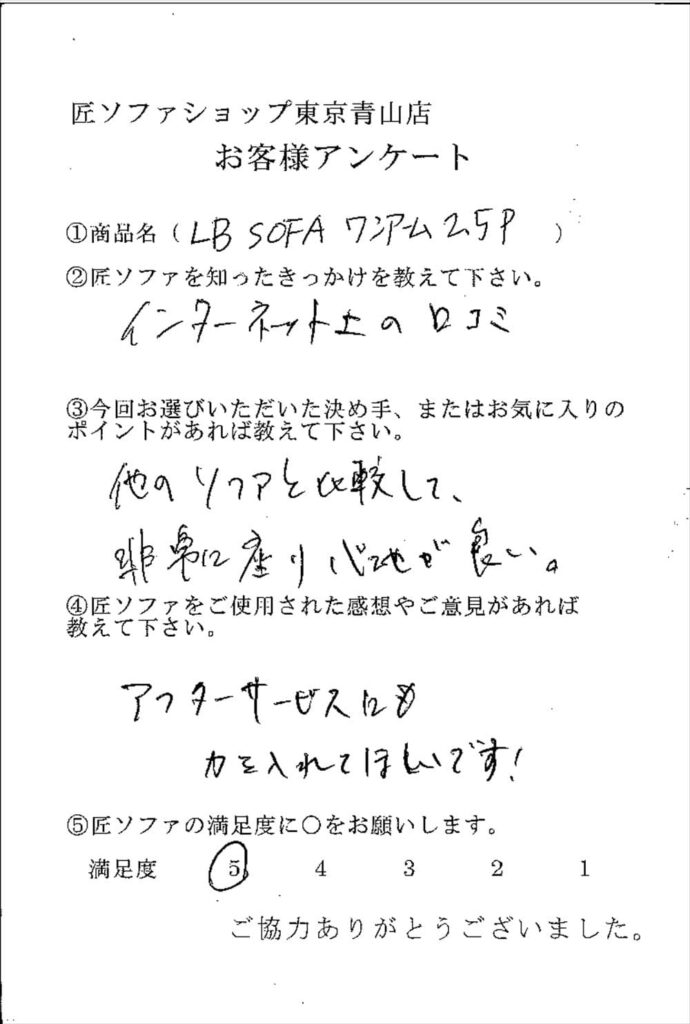 匠ソファショップ東京青山店
お客様アンケート
①商品名（ LB SOFA ワンアーム 2.5P ）
②匠ソファを知ったきっかけを教えて下さい。
インターネット上の口コミ
③今回お選びいただいた決め手、またはお気に入りの
ポイントがあれば教えて下さい。
他のソファと比較して、
非常に座り心地が良い。
④匠ソファをご使用された感想やご意見があれば
教えて下さい。
アフターサービスにも
力を入れてほしいです!
⑤匠ソファの満足度に〇をお願いします。
満足度 5 4 3 2 1
ご協力ありがとうございました。